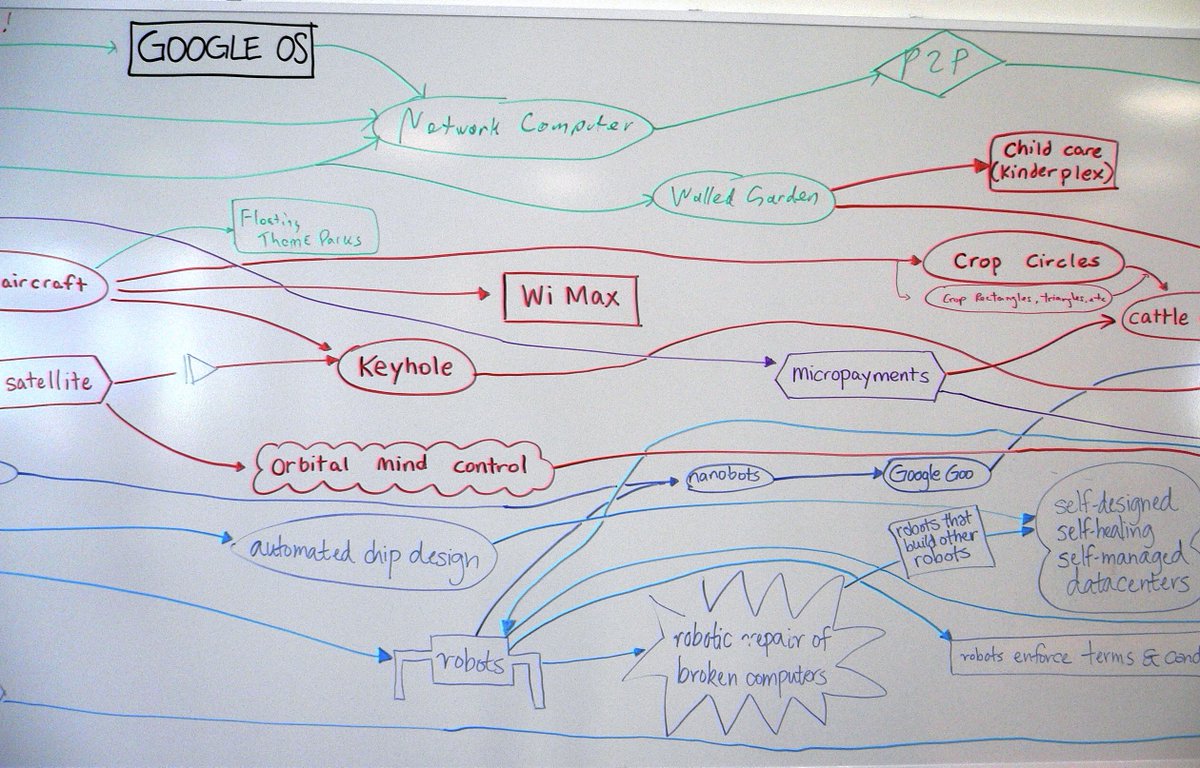 !
GOOGLE OS
P2P
Network Computer
Child care
(kinderplex)
Walled Garden
Floating
Theme Parks
aircraft
Crop Circles
Wi Max
Crop Rectangles, triangles, etc
cattle
Keyhole
satellite
micropayments
Orbital mind control
nanobots
Google Goo
self-designed
self-healing
self-managed
datacenters
robots that
build other
robots
automated chip design
robotic repair of
broken computers
robots
robots enforce terms & cond